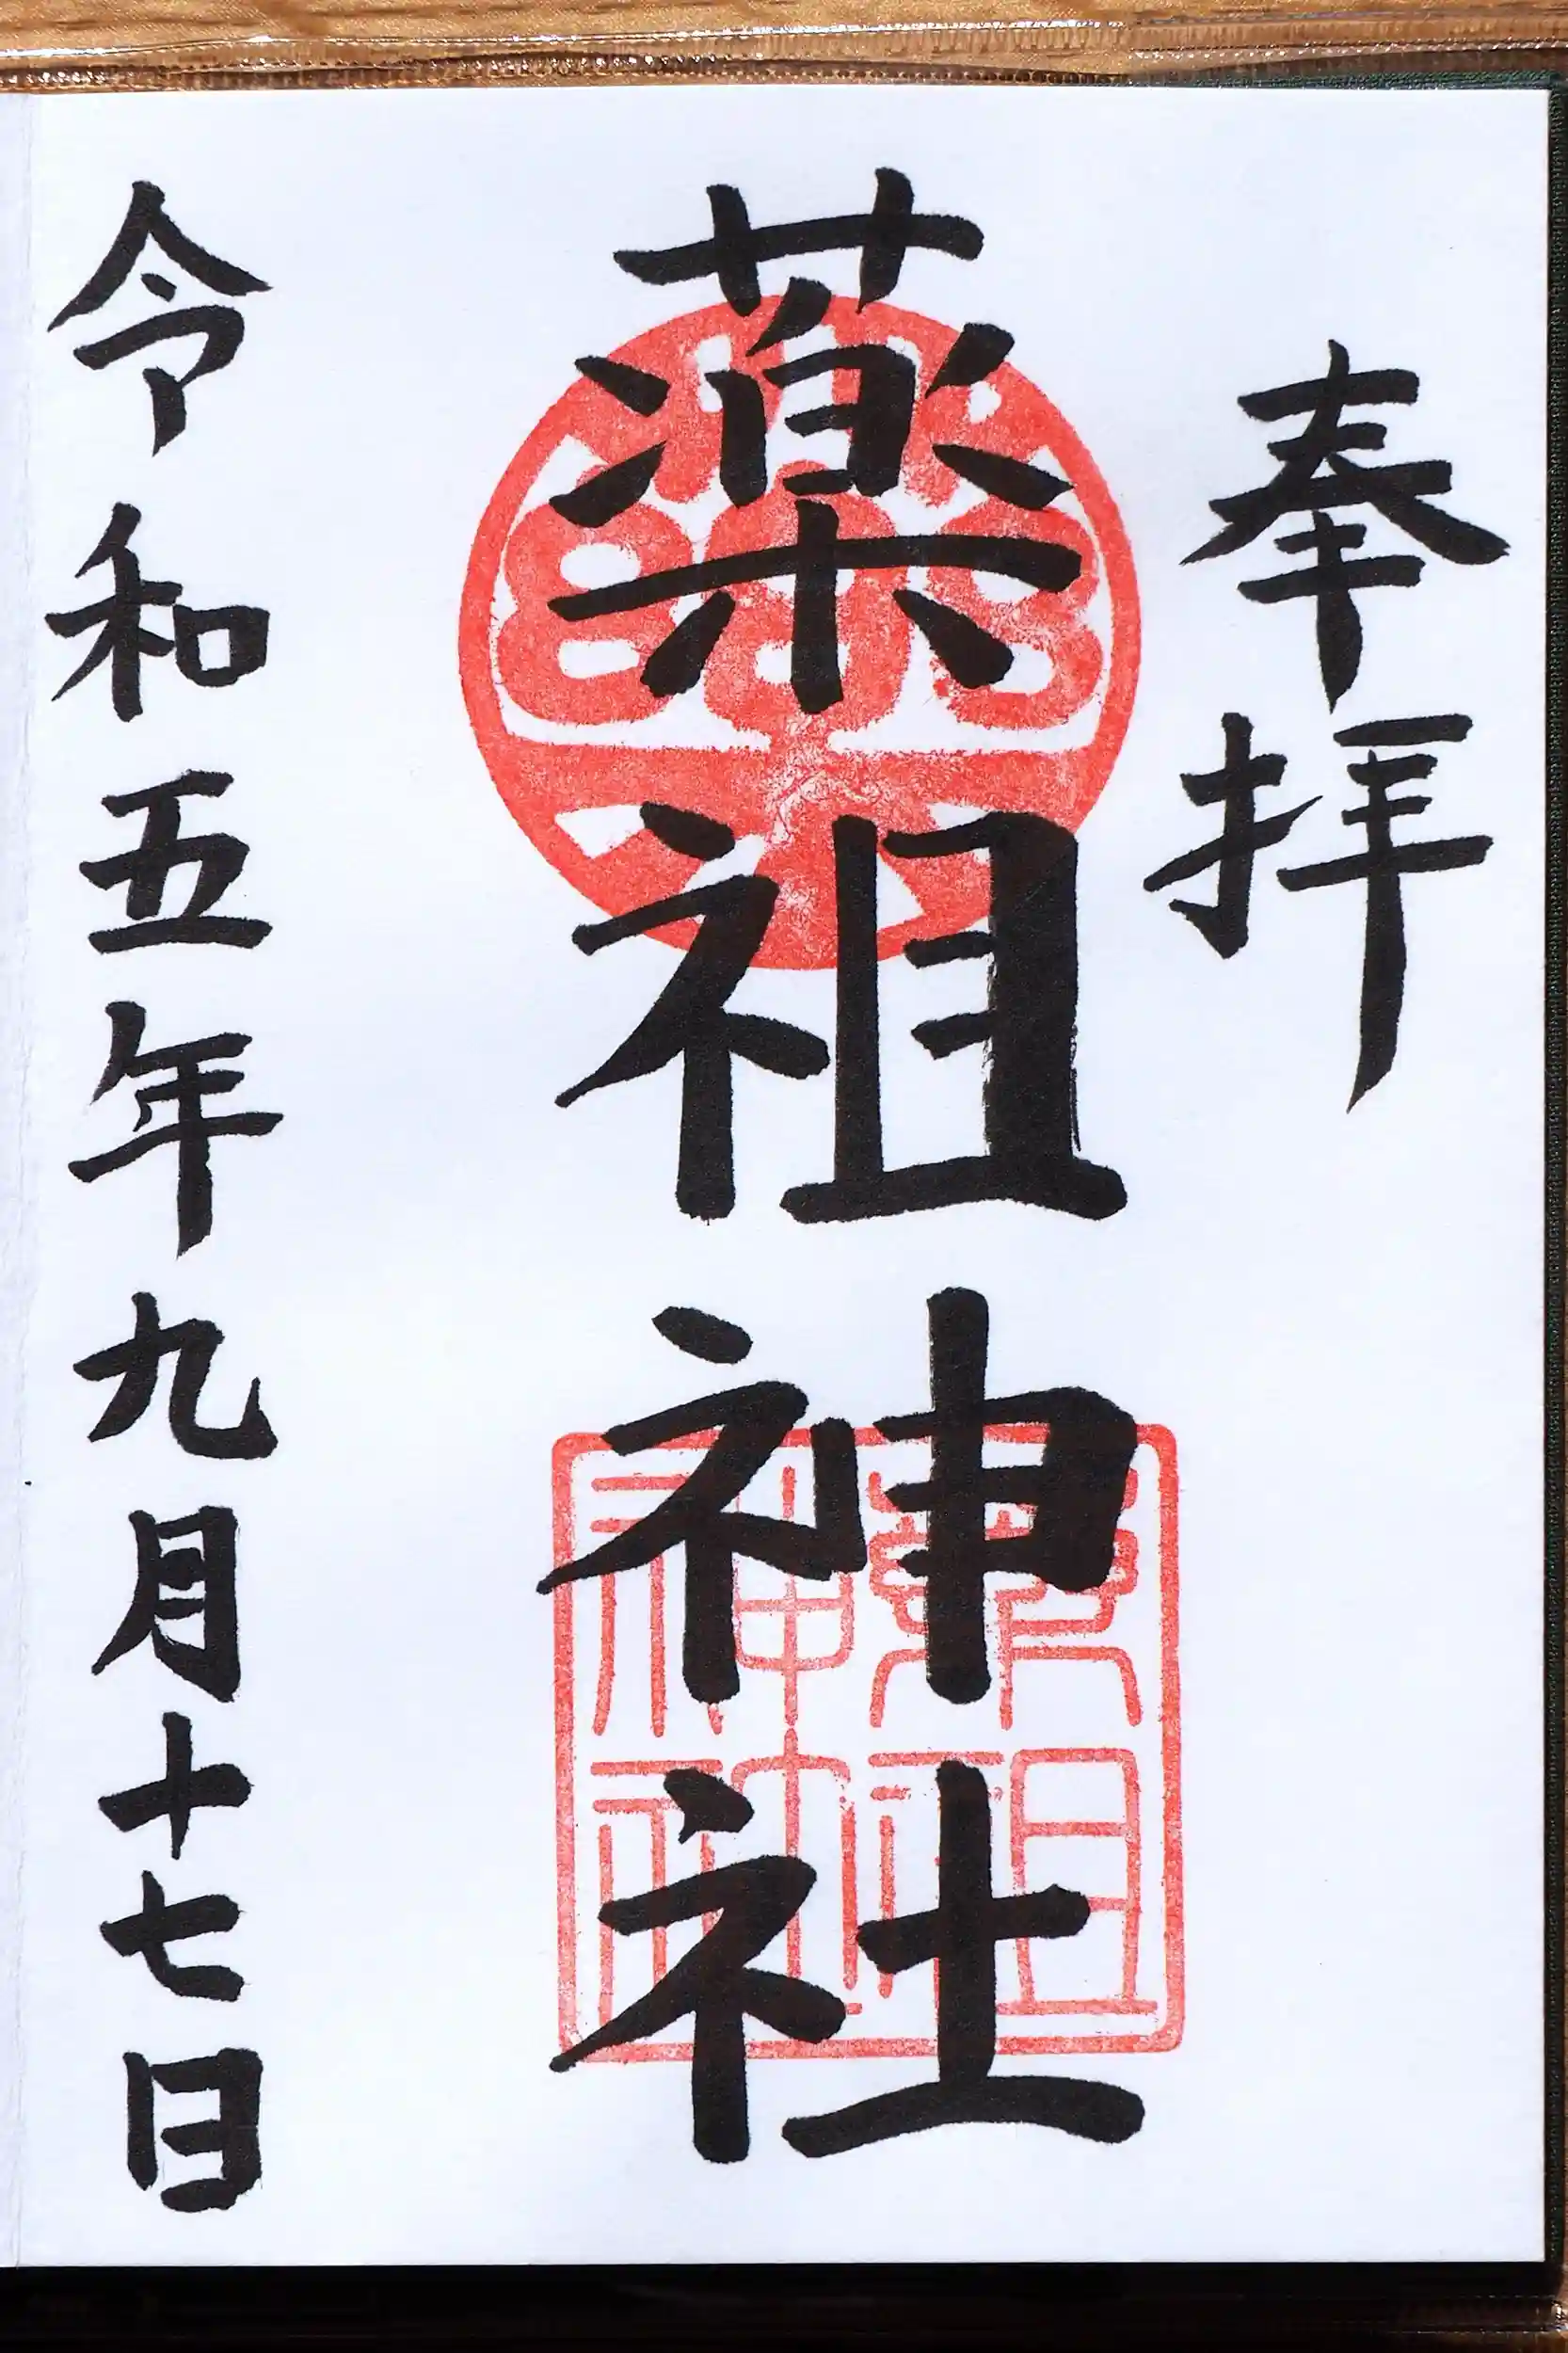 奉拝
薬祖神社
薬祖神社
令和五年九月十七日